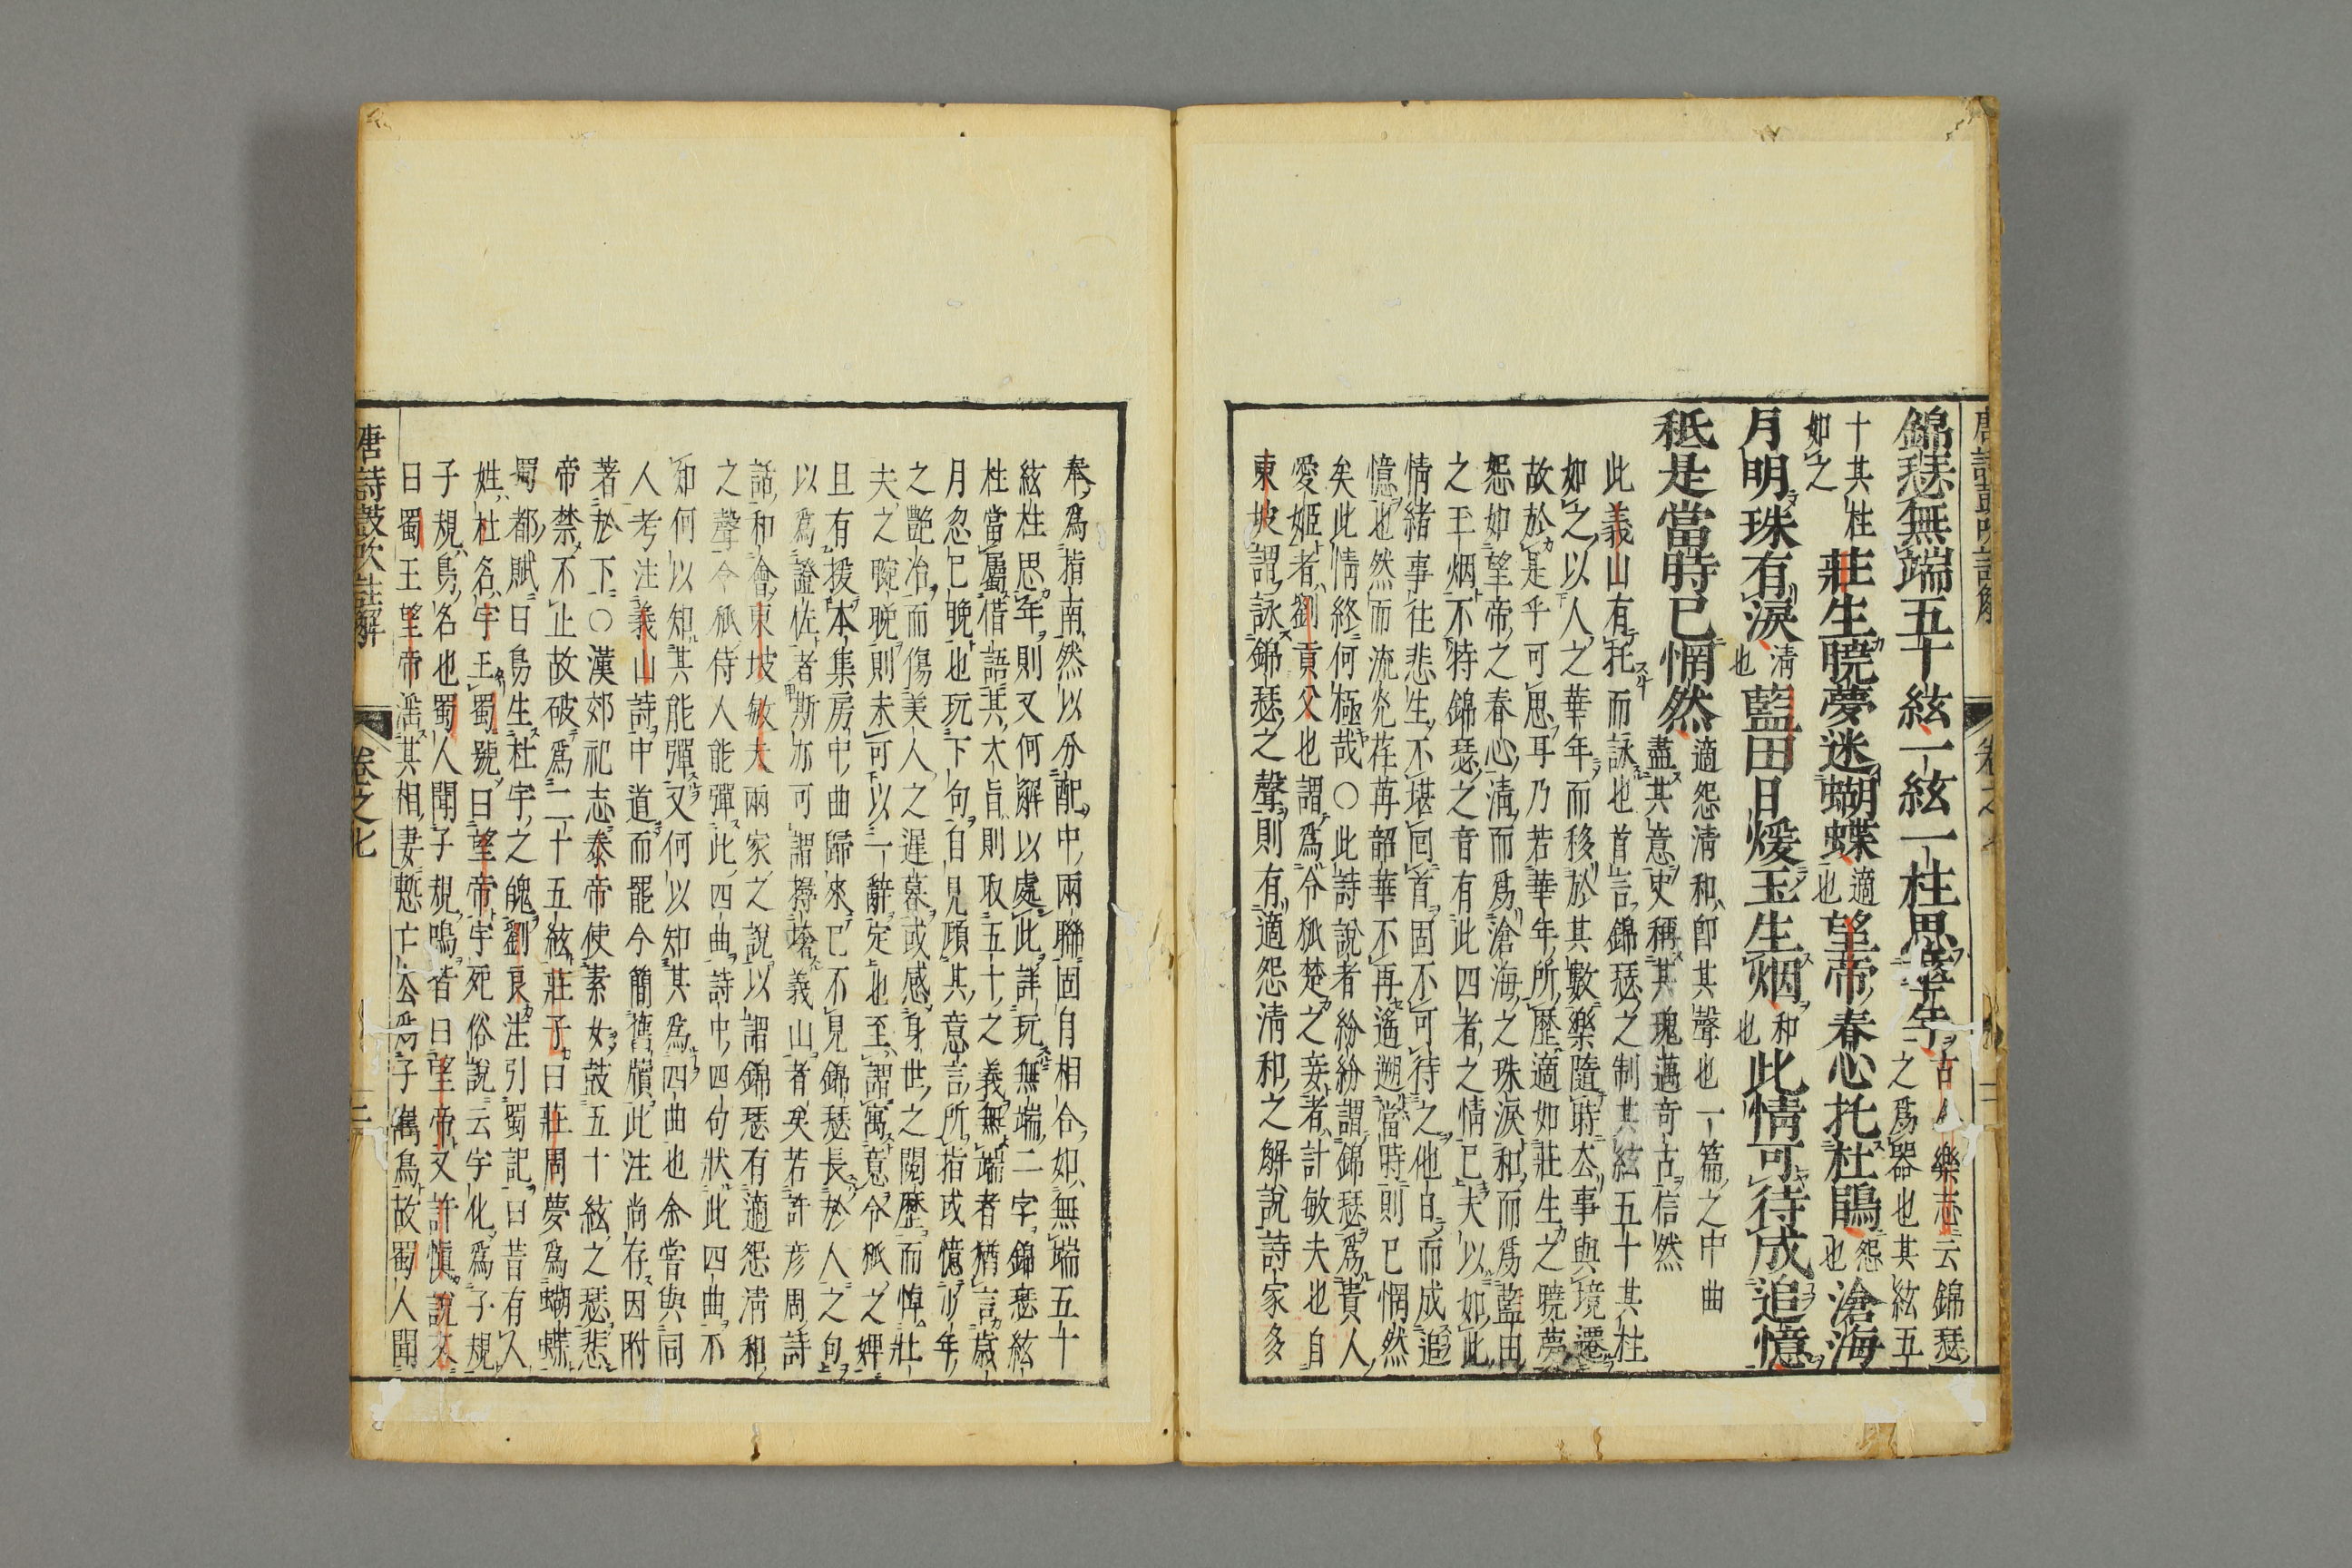 唐詩鼓吹註解 卷之七 二
錦瑟無端五十絃一絃一柱思華年古今樂志云錦瑟
之為器也其絃五
十其柱如之莊生曉夢迷蝴蝶適也望帝春心托杜鵑怨也滄海
月明珠有淚清也藍田日煖玉生烟和也此情可待成追憶
秖是當時已惘然適怨清和即其聲也一篇之中曲
盡其意史稱其瑰邁奇古信然
此義山有托而詠也首言錦瑟之制其絃五十其柱
如之以人之華年而移於其數樂隨時去事與境遷
故於是乎可思耳乃若華年所歷適如莊生之曉夢
怨如望帝之春心清而為滄海之珠淚和而為藍田
之玉烟不特錦瑟之音有此四者之情已夫以如此
情緒事往悲生不堪回首固不可待之他日而成追
憶也然而流光荏苒韶華不再遙遡當時則已惘然
矣此情終何極哉○此詩說者紛紛謂錦瑟為貴人
愛姬者劉貢父也謂為令狐楚之妾者計敏夫也自
東坡謂詠錦瑟之聲則有適怨清和之解說詩家多
奉為指南然以分配中兩聯固自相合如無端五十
絃柱思年則又何解以處此詳玩無端二字錦瑟絃
柱當屬借語其大旨則取五十之義無端者猶言歲
月忽已晚也玩下句自見顧其意言所指或憶少年
之艷冶而傷美人之遲暮或感身世之閱歷而悼壯
夫之晼晚則未可以一辭定也至謂寓意令狐之婢
且有援本集房中曲歸來已不見錦瑟長於人之句
以為證佐者斯亦可謂撏撦義山者矣若許彥周詩
話和會東坡敏夫兩家之說以謂錦瑟有適怨清和
之聲令狐侍人能彈此四曲詩中四句狀此四曲不
知何以知其能彈又何以知其為四曲也余嘗與同
人考注義山詩中道而罷今簡舊牘此注尚存因附
著於下○漢郊祀志泰帝使素女鼓五十絃之瑟悲
帝禁不止故破為二十五絃莊子曰莊周夢為蝴蝶
蜀都賦曰鳥生杜宇之魄劉良注引蜀記曰昔有人
姓杜名宇王蜀號曰望帝宇死俗說云宇化為子規
子規鳥名也蜀人聞子規鳴皆曰望帝又許慎說文
曰蜀王望帝滛其相妻慙亡去為子嶲鳥故蜀人聞
唐詩鼓吹註解 卷之七 二